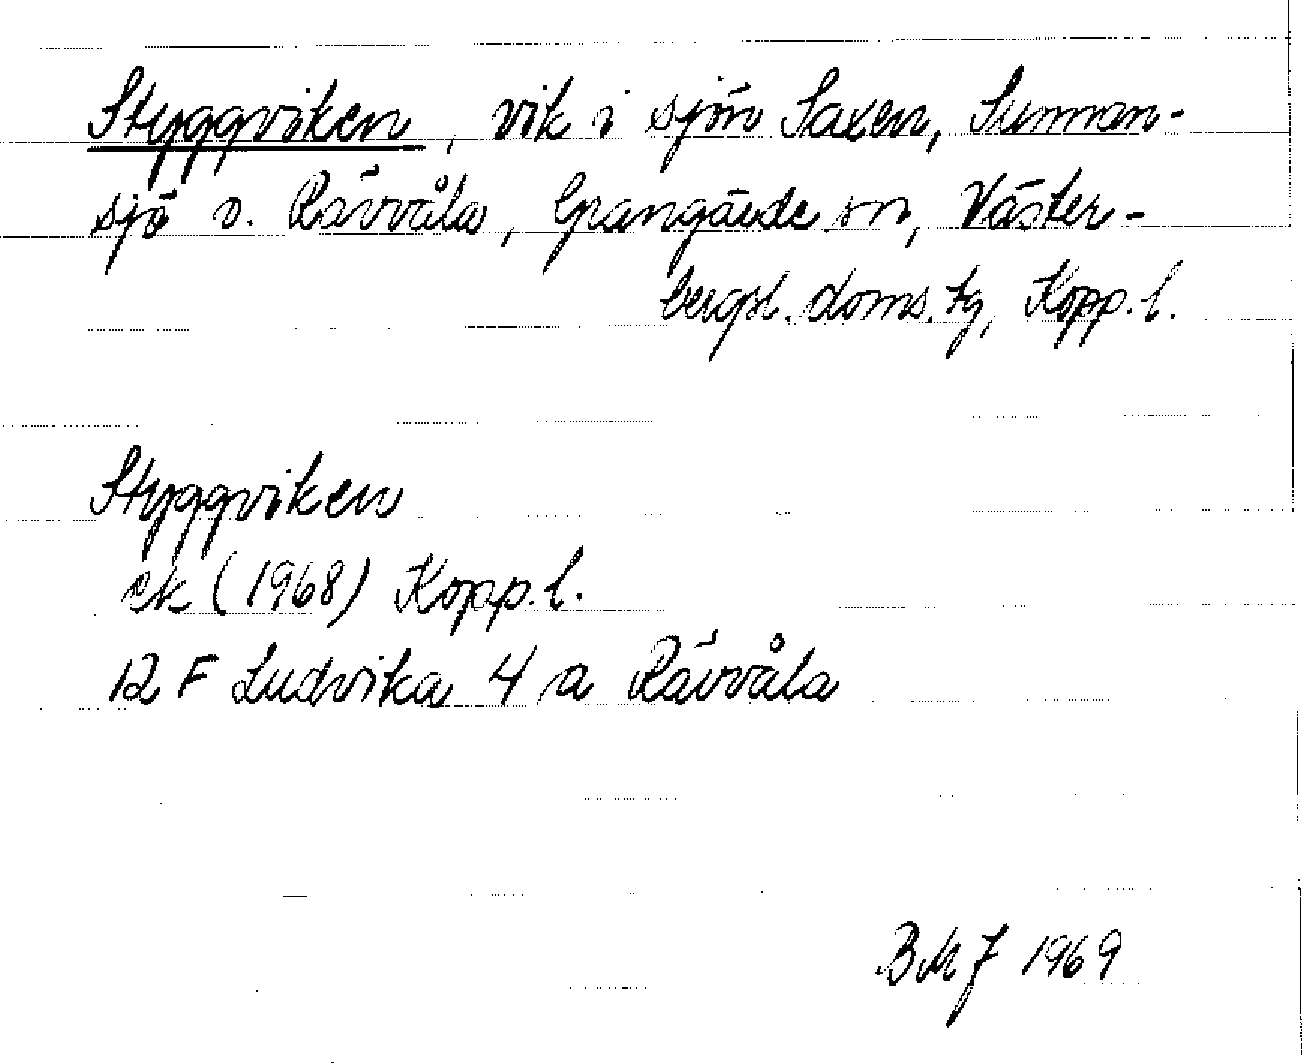 Styggviken, vik i sjön Saxen, Sunnan-
sjö o. Rävvåla, Grangärde sn, Väster-
bergsl. doms. tg, Kopp. l.
Styggviken
ek (1968) Kopp. l.
12 F Ludvika 4 a Rävvåla
BMJ 1969